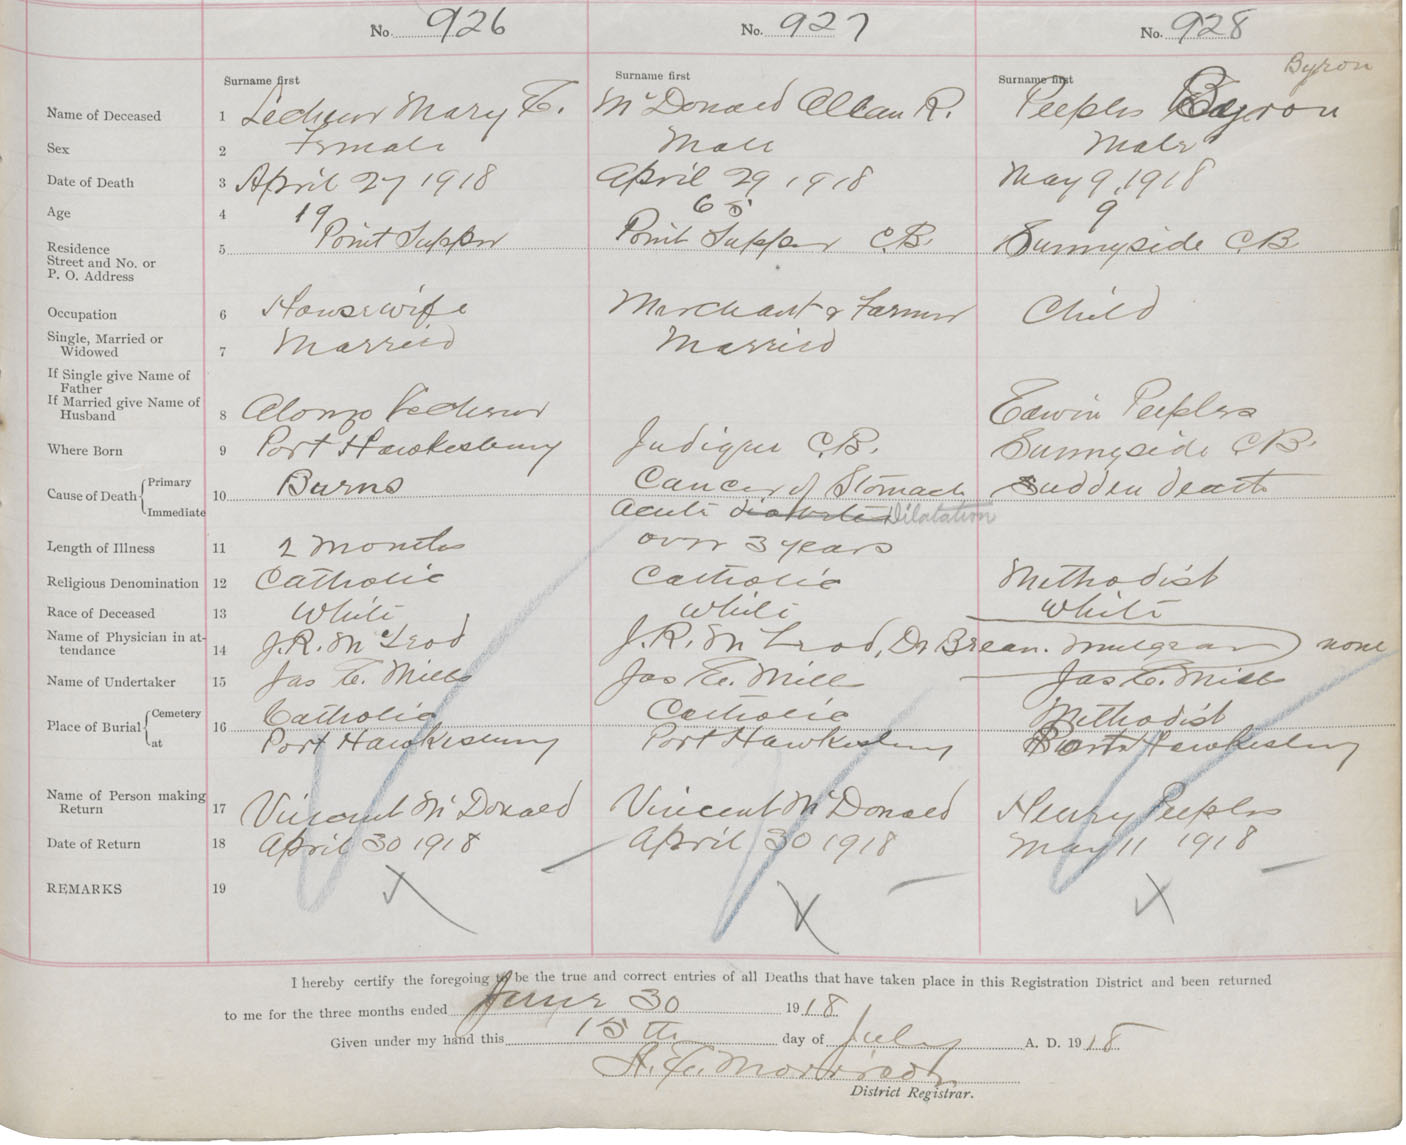 No. 926 No. 927 No. 928
Byron
Surname first Surname first Surname first
Name of Deceased 1 Mary E. McDonald Allan R. Peeples Byron
Sex 2 Female Male Male
Date of Death 3 April 27 1918 April 29 1918 May 9, 1918
Age 4 19 65 9
Residence Street and No. or P. O. Address 5 Point Tupper Point Tupper C.B. Sunnyside C.B.
Occupation 6 Housewife Merchant & Farmer Child
Single, Married or Widowed 7 Married Married
If Single give Name of Father
If Married give Name of Husband 8 Alonzo Edwin Peeples
Where Born 9 Port Hawkesbury Judique C.B. Sunnyside C.B.
Cause of Death { Primary 10 Burns Cancer of Stomach Sudden death
Immediate Acute Dilatation
Length of Illness 11 2 months over 3 years
Religious Denomination 12 Catholic Catholic Methodist
Race of Deceased 13 White White White
Name of Physician in attendance 14 J.R. McLeod J.R. McLeod, Dr Brean. none
Name of Undertaker 15 Jas E. Mills Jas E. Mills Jas E. Mills
Place of Burial { Cemetery 16 Catholic Catholic Methodist
at Port Hawkesbury Port Hawkesbury Port Hawkesbury
Name of Person making Return 17 Vincent McDonald Vincent McDonald Henry Peeples
Date of Return 18 April 30 1918 April 30 1918 May 11 1918
REMARKS 19 X X X
I hereby certify the foregoing to be the true and correct entries of all Deaths that have taken place in this Registration District and been returned
to me for the three months ended June 30 1918
Given under my hand this 15th day of July A. D. 1918
Morrison
District Registrar.